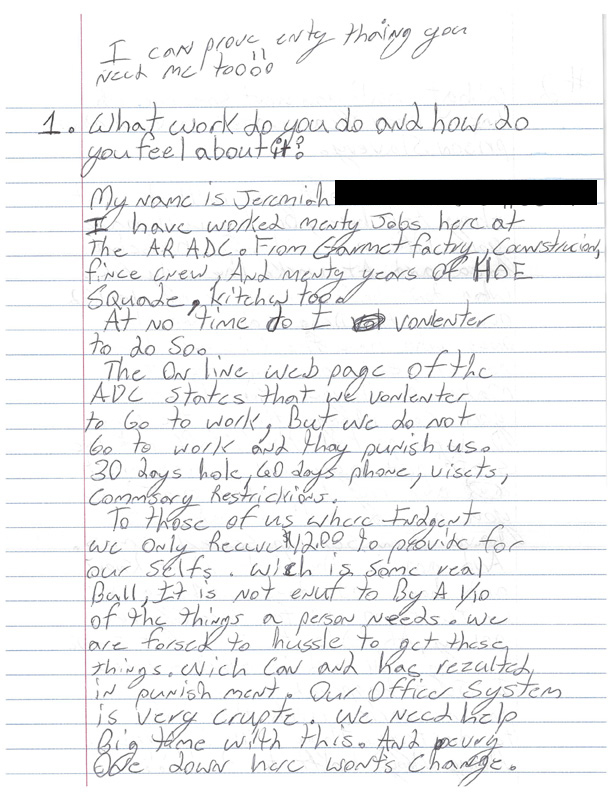 I can prove enty thaing you
need me tooo!!
1. What work do you do and how do
you feel about it?
My name is Jeremiah
I have worked menty Jobs here at
The AR ADC. From Garmet factry, Counstrucion,
fince crew, And menty years of HOE
Squade, kitchen too.
At no time do I vonlenter
to do So.
The On line web page of the
ADC States that we vonlenter
to Go to work, But we do not
Go to work and thay punish us.
30 days hole, 60 days phone, visets,
Commsory Restrickions.
To those of us where Indgent
we Only Recive $12.00 to provide for
our Selfs. Wich is Some real
Bull, It is not enuf to By A
of the things a person needs. We
are forsed to hussle to get these
things. Wich Can and has rezulted
in punish ment. Our Officer System
is Very Crupte. We Need help
Big time with this. And
One down here wonts Change.